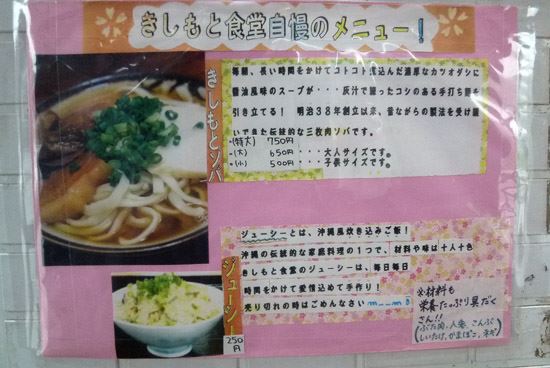 きしもと食堂自慢のメニュー!
きしもとソバ
毎朝、長い時間をかけてコトコト煮込んだ濃厚なカツオダシに
醤油風味のスープが・・・灰汁で練ったコシのある手打ち麺を
引き立てる! 明治38年創立以来、昔ながらの製法を受け継
いできた伝統的な三枚肉ソバです。
・(特大) 750円
・(大) 650円・・・大人サイズです。
・(小) 500円・・・子供サイズです。
ジューシー
250円
ジューシーとは、沖縄風炊き込みご飯!
沖縄の伝統的な家庭料理の1つで、材料や味は十人十色
きしもと食堂のジューシーは、毎日毎日
時間をかけて愛情込めて手作り!
売り切れの時はごめんなさい m__m
※材料も
栄養たっぷり具だく
さん!!
(ぶた肉、人参、こんぶ
しいたけ、かまぼこ、ネギ)